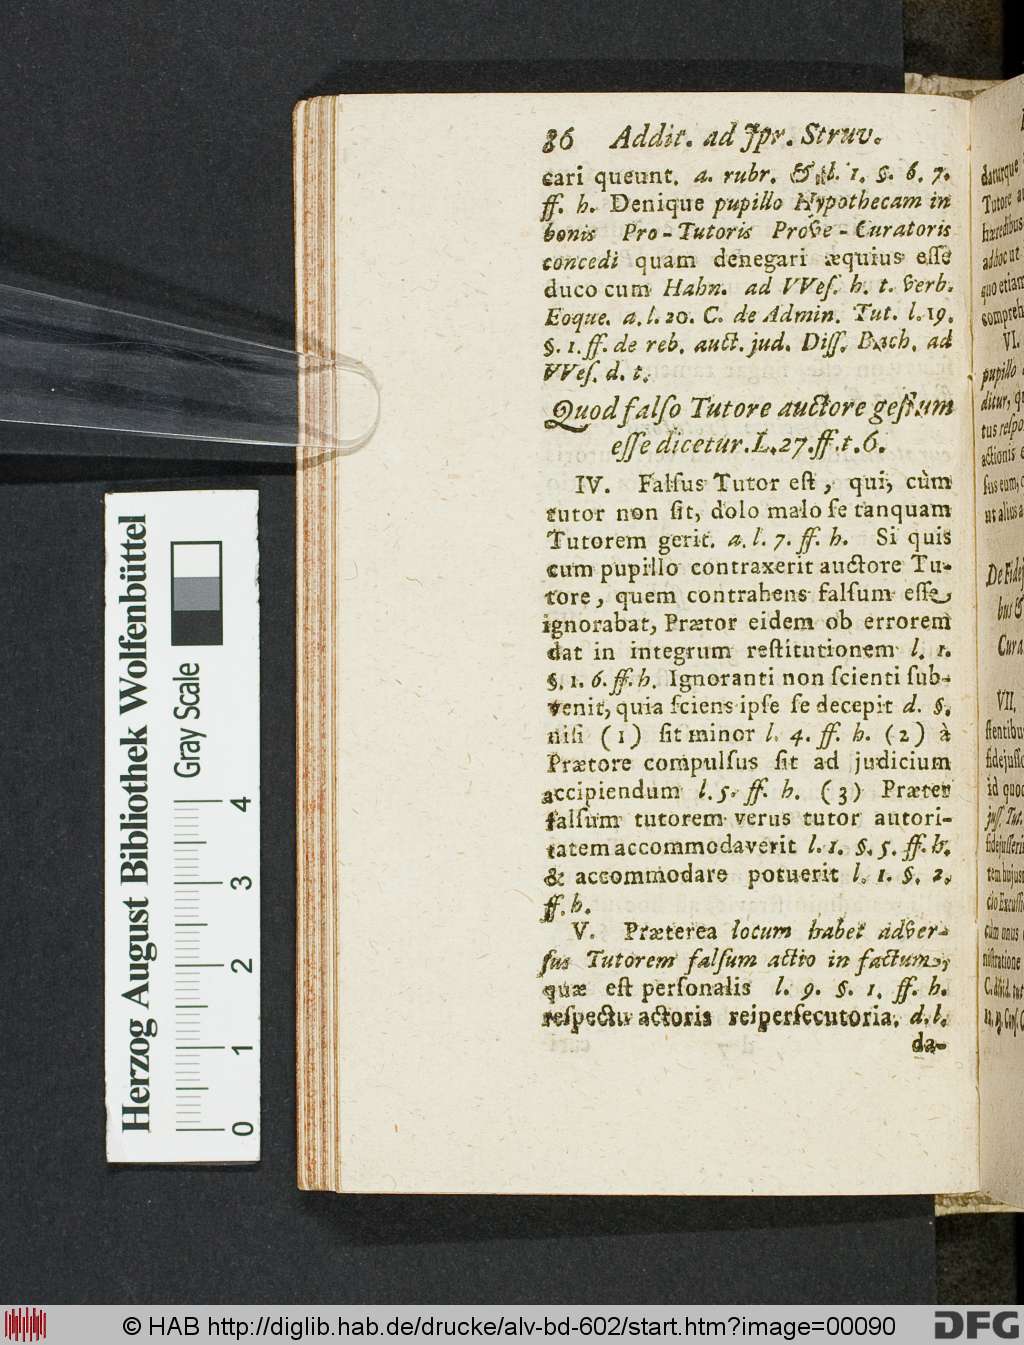 86 Addit. ad Jpr. Struv.
cari queunt. a. rubr. & l. 1. §. 6. 7.
ff. h. Denique pupillo Hypothecam in
bonis Pro-Tutoris Prove-Curatoris
concedi quam denegari æquius eſſe
duco cum Hahn. ad VVeſ. h. t. verb.
Eoque. a. l. 20. C. de Admin. Tut. l. 19.
§. 1. ff. de reb. auct. jud. Diſſ. Bach. ad
VVeſ. d. t.
Quod falſo Tutore auctore geſtum
eſſe dicetur. L. 27. ff. t. 6.
IV. Falſus Tutor eſt, qui, cùm
tutor non ſit, dolo malo ſe tanquam
Tutorem gerit. a. l. 7. ff. h. Si quis
cum pupillo contraxerit auctore Tu-
tore, quem contrahens falſum eſſe
ignorabat, Prætor eidem ob errorem
dat in integrum reſtitutionem l. 1.
§. 1. 6. ff. h. Ignoranti non ſcienti ſub-
venit, quia ſciens ipſe ſe decepit d. §.
niſi (1) ſit minor l. 4. ff. h. (2) à
Prætore compulſus ſit ad judicium
accipiendum l. 5. ff. h. (3) Præter
falſum tutorem verus tutor autori-
tatem accommodaverit l. 1. §. 5. ff. h.
& accommodare potuerit l. 1. §. 2.
ff. h.
V. Præterea locum habet adver-
ſus Tutorem falſum actio in factum,
quæ eſt perſonalis l. 9. §. 1. ff. h.
reſpectu actoris reiperſecutoria. d. l.
da-
daturque
Tutore
hæredibus
adhoc ut
quo etiam
compreh
VI.
pupillo
ditur, q
tus reſpo
actionis
ſus eum,
ut alius a
De Fidej
bus &
Cura
VII.
ſtentibu
fidejuſſo
id quod
juſſ. Tut.
fidejuſſeri
tem hujus
cio Excuſſi
cum onus
niſtratione
Herzog August Bibliothek Wolfenbüttel
Gray Scale
0 1 2 3 4
© HAB http://diglib.hab.de/drucke/alv-bd-602/start.htm?image=00090
DFG